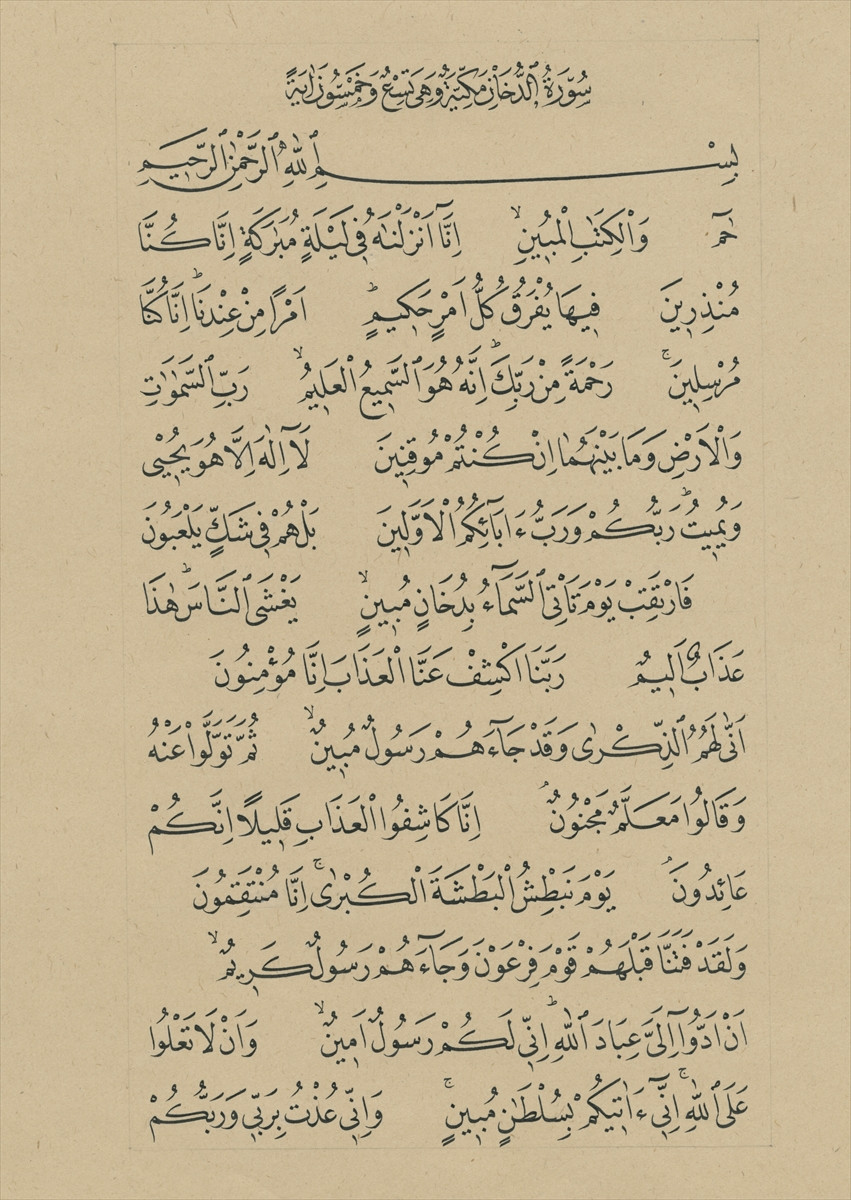 سُورَةُ ٱلدُّخَانِ مَكِّيَّةٌ وَهِيَ تِسْعٌ وَخَمْسُونَ اٰيَةً
بِسْمِ ٱللّٰهِ ٱلرَّحْمٰنِ ٱلرَّحِيمِ
حٰمٓ وَٱلْكِتَابِ ٱلْمُبِينِۙ اِنَّٓا اَنْزَلْنَاهُ فِى لَيْلَةٍ مُبَارَكَةٍ اِنَّا كُنَّا
مُنْذِرِينَ فِيهَا يُفْرَقُ كُلُّ اَمْرٍ حَكِيمٍۜ اَمْرًا مِنْ عِنْدِنَاۜ اِنَّا كُنَّا
مُرْسِلِينَۚ رَحْمَةً مِنْ رَبِّكَۜ اِنَّهُ هُوَ ٱلسَّمِيعُ ٱلْعَلِيمُۙ رَبِّ ٱلسَّمٰوَاتِ
وَٱلْاَرْضِ وَمَا بَيْنَهُمَا اِنْ كُنْتُمْ مُوقِنِينَ لَٓا اِلٰهَ اِلَّا هُوَ يُحْيِى
وَيُمِيتُۜ رَبُّكُمْ وَرَبُّ ءَابَٓائِكُمُ ٱلْاَوَّلِينَ بَلْ هُمْ فِى شَكٍّ يَلْعَبُونَ
فَارْتَقِبْ يَوْمَ تَاْتِى ٱلسَّمَٓاءُ بِدُخَانٍ مُبِينٍۙ يَغْشَى ٱلنَّاسَۜ هٰذَا
عَذَابٌ اَلِيمٌ رَبَّنَا اكْشِفْ عَنَّا ٱلْعَذَابَ اِنَّا مُؤْمِنُونَ
اَنّٰى لَهُمُ ٱلذِّكْرٰى وَقَدْ جَٓاءَهُمْ رَسُولٌ مُبِينٌۙ ثُمَّ تَوَلَّوْا عَنْهُ
وَقَالُوا مُعَلَّمٌ مَجْنُونٌۘ اِنَّا كَاشِفُوا ٱلْعَذَابِ قَلِيلًا اِنَّكُمْ
عَائِدُونَۘ يَوْمَ نَبْطِشُ ٱلْبَطْشَةَ ٱلْكُبْرٰىۚ اِنَّا مُنْتَقِمُونَ
وَلَقَدْ فَتَنَّا قَبْلَهُمْ قَوْمَ فِرْعَوْنَ وَجَٓاءَهُمْ رَسُولٌ كَرِيمٌۙ
اَنْ اَدُّٓوا اِلَىَّ عِبَادَ ٱللّٰهِۜ اِنِّى لَكُمْ رَسُولٌ اَمِينٌۙ وَاَنْ لَا تَعْلُوا
عَلَى ٱللّٰهِۚ اِنِّٓى ءَاتِيكُمْ بِسُلْطَانٍ مُبِينٍۚ وَاِنِّى عُذْتُ بِرَبِّى وَرَبِّكُمْ